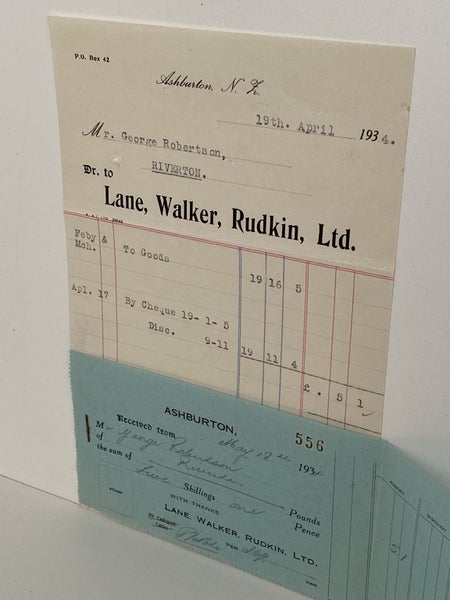 P.O. Box 42
Ashburton, N. Z.
19th. April 1934.
Mr. George Robertson,
RIVERTON.
Dr. to
Lane, Walker, Rudkin, Ltd.
Feby & To Goods 19 16 5
Mch.
Apl. 17 By Cheque 19- 1- 5
Disc. 9-11 19 11 4
2. 5 1
ASHBURTON,
556
Received from May 18 1934
Mr George Robertson
of Riverton
the sum of Pounds
five Shillings one Pence
WITH THANKS
LANE, WALKER, RUDKIN, LTD.
BY CHEQUE
CASH
PER